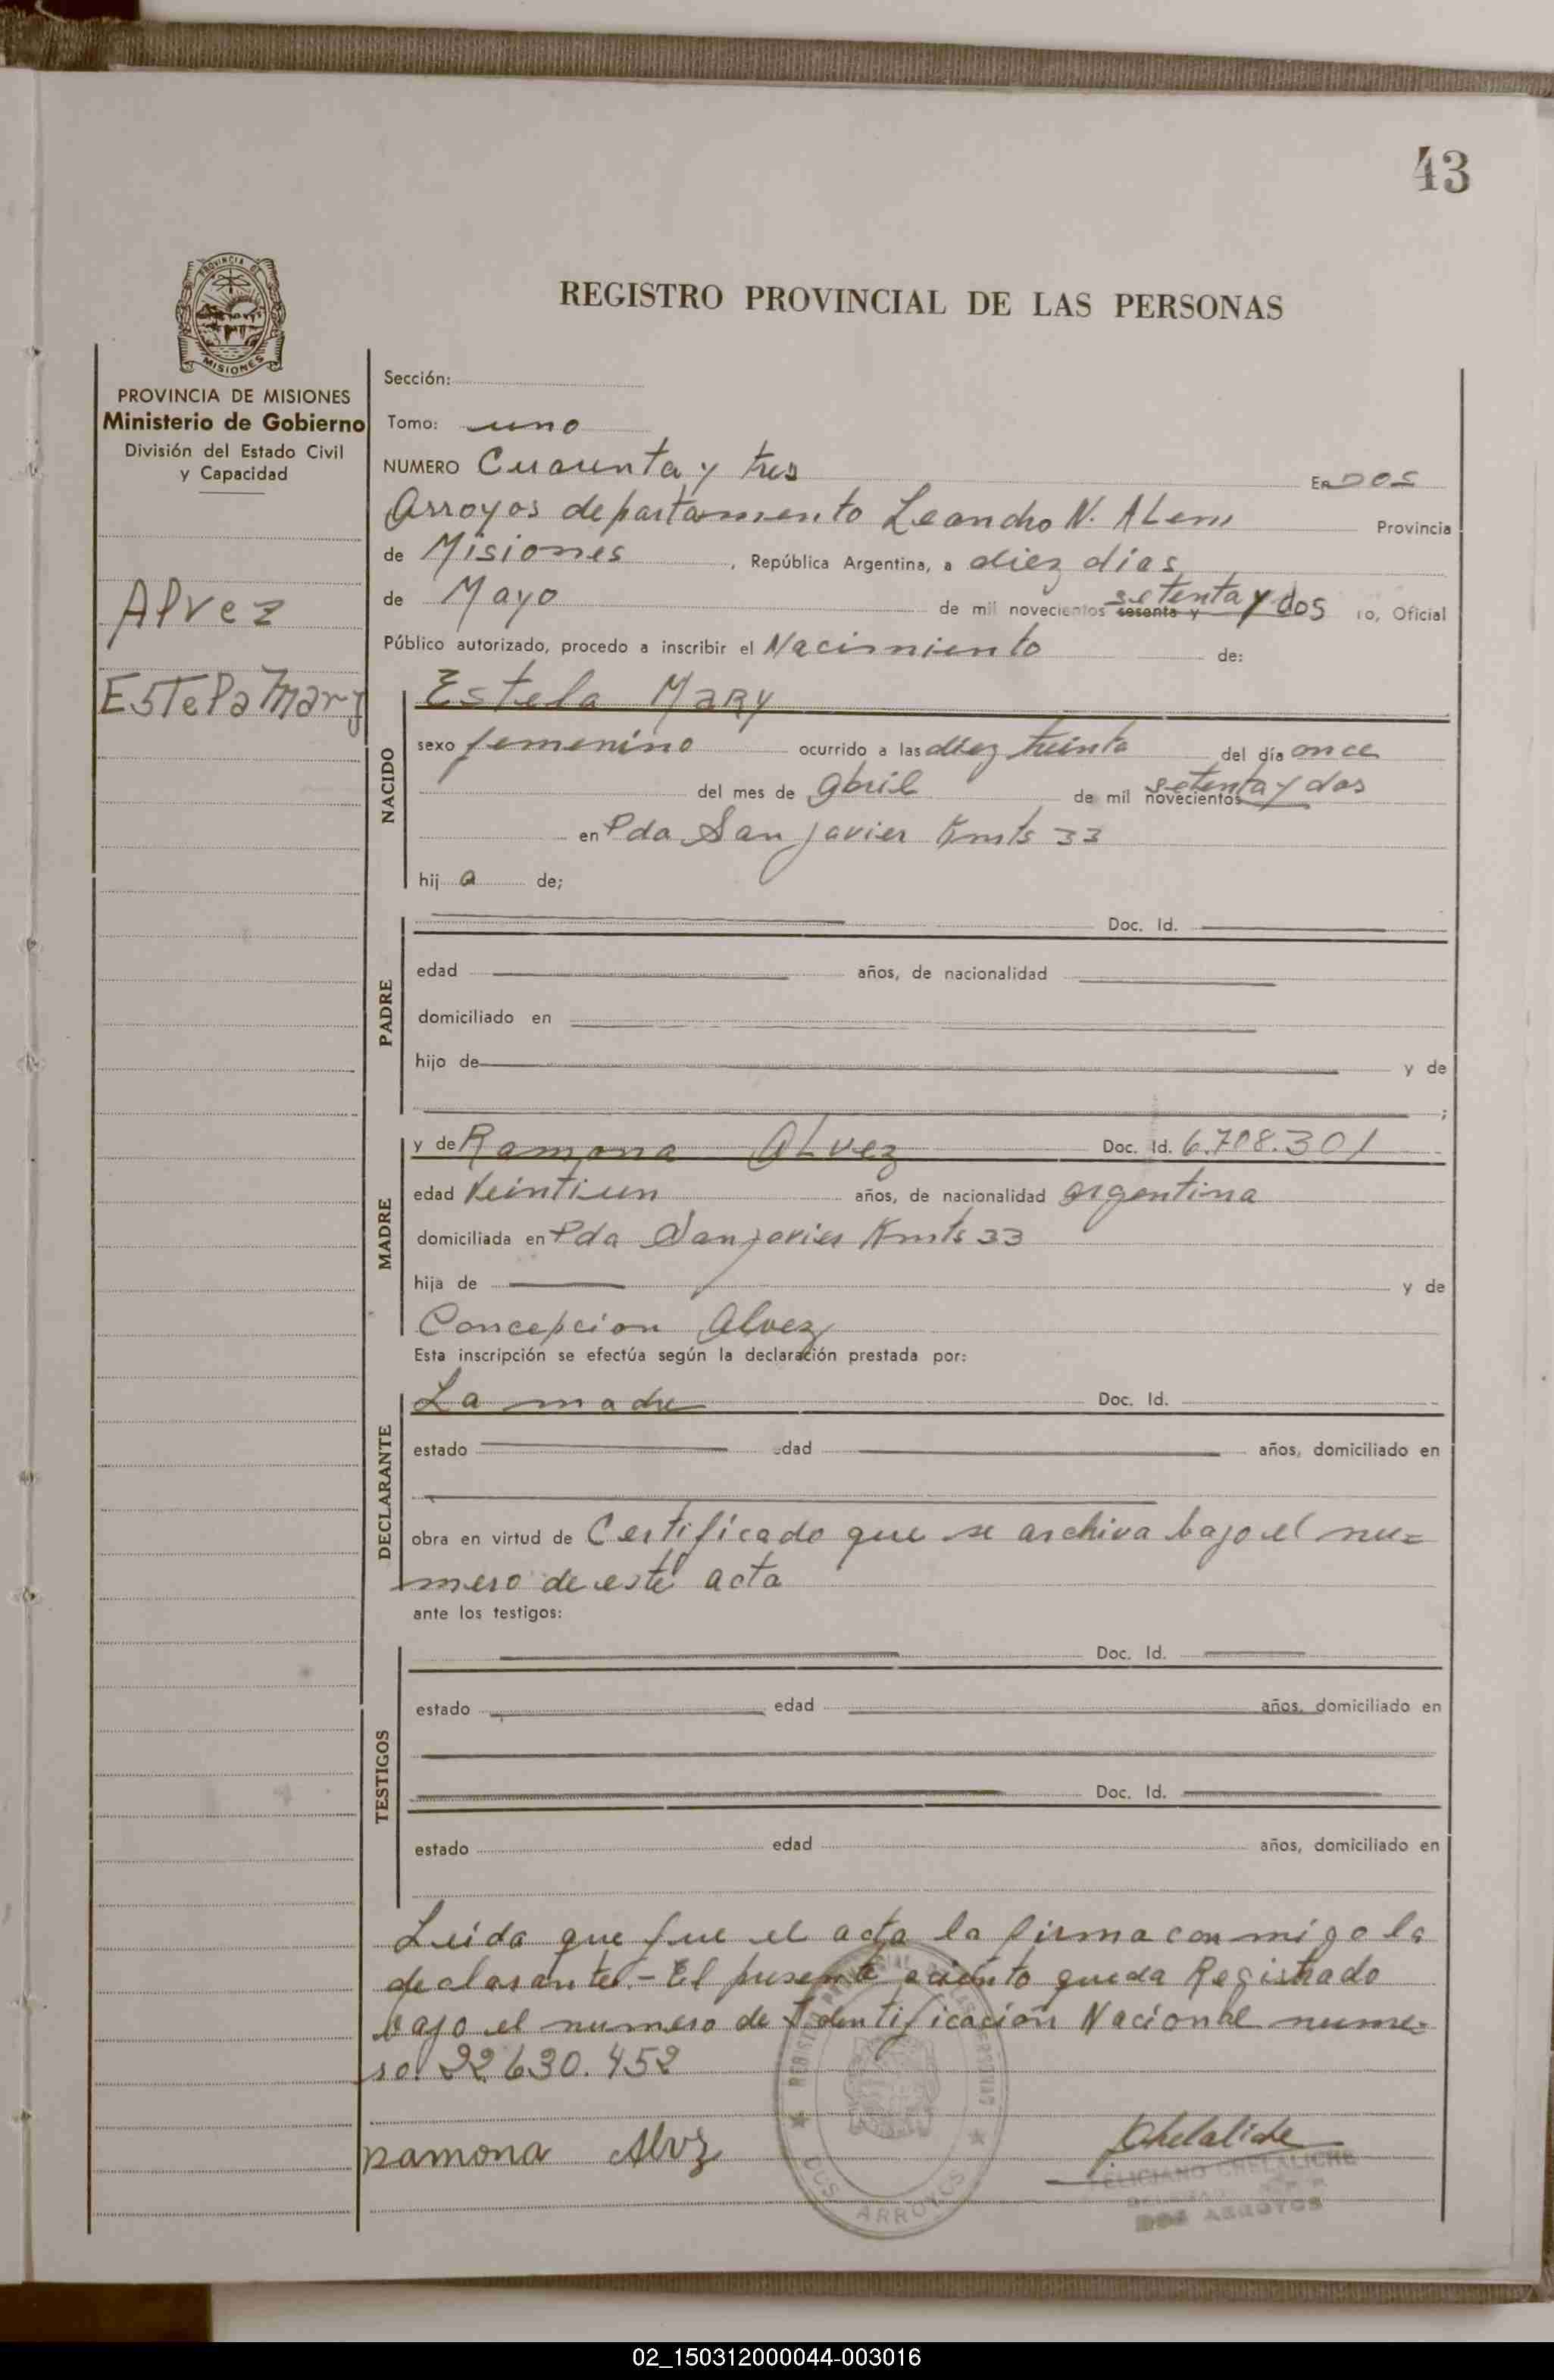 43
PROVINCIA DE
MISIONES
REGISTRO PROVINCIAL DE LAS PERSONAS
PROVINCIA DE MISIONES
Ministerio de Gobierno
División del Estado Civil
y Capacidad
Alvez
Estela Mary
Sección:
Tomo: uno
NUMERO Cuarenta y tres En Dos
Arroyos departamento Leandro N. Alem Provincia
de Misiones, República Argentina, a diez días
de Mayo de mil novecientos sesenta y setenta y dos ro, Oficial
Público autorizado, procedo a inscribir el Nacimiento de:
NACIDO
Estela Mary
sexo femenino ocurrido a las diez treinta del día once
del mes de abril de mil novecientos setenta y dos
en Pda San Javier Kmts 33
hij a de;
PADRE
Doc. Id.
edad años, de nacionalidad
domiciliado en
hijo de y de
;
MADRE
y de Ramona Alvez Doc. Id. 6.708.301
edad Veintiun años, de nacionalidad argentina
domiciliada en Pda San javier Kmts 33
hija de y de
Concepcion Alvez
Esta inscripción se efectúa según la declaración prestada por:
DECLARANTE
La madre Doc. Id.
estado edad años, domiciliado en
obra en virtud de Certificado que se archiva bajo el nu=
mero de este acta
ante los testigos:
TESTIGOS
Doc. Id.
estado edad años, domiciliado en
Doc. Id.
estado edad años, domiciliado en
Leida que fue el acta la firma conmigo la
declarante.- El presente aciento queda Registrado
bajo el numero de Identificación Nacional nume=
ro. 22.630.452
Ramona Alvz
Chelaliche
FELICIANO CHELALICHE
DOS ARROYOS
REGISTRO PROVINCIAL DE LAS PERSONAS
DOS ARROYOS
02_150312000044-003016